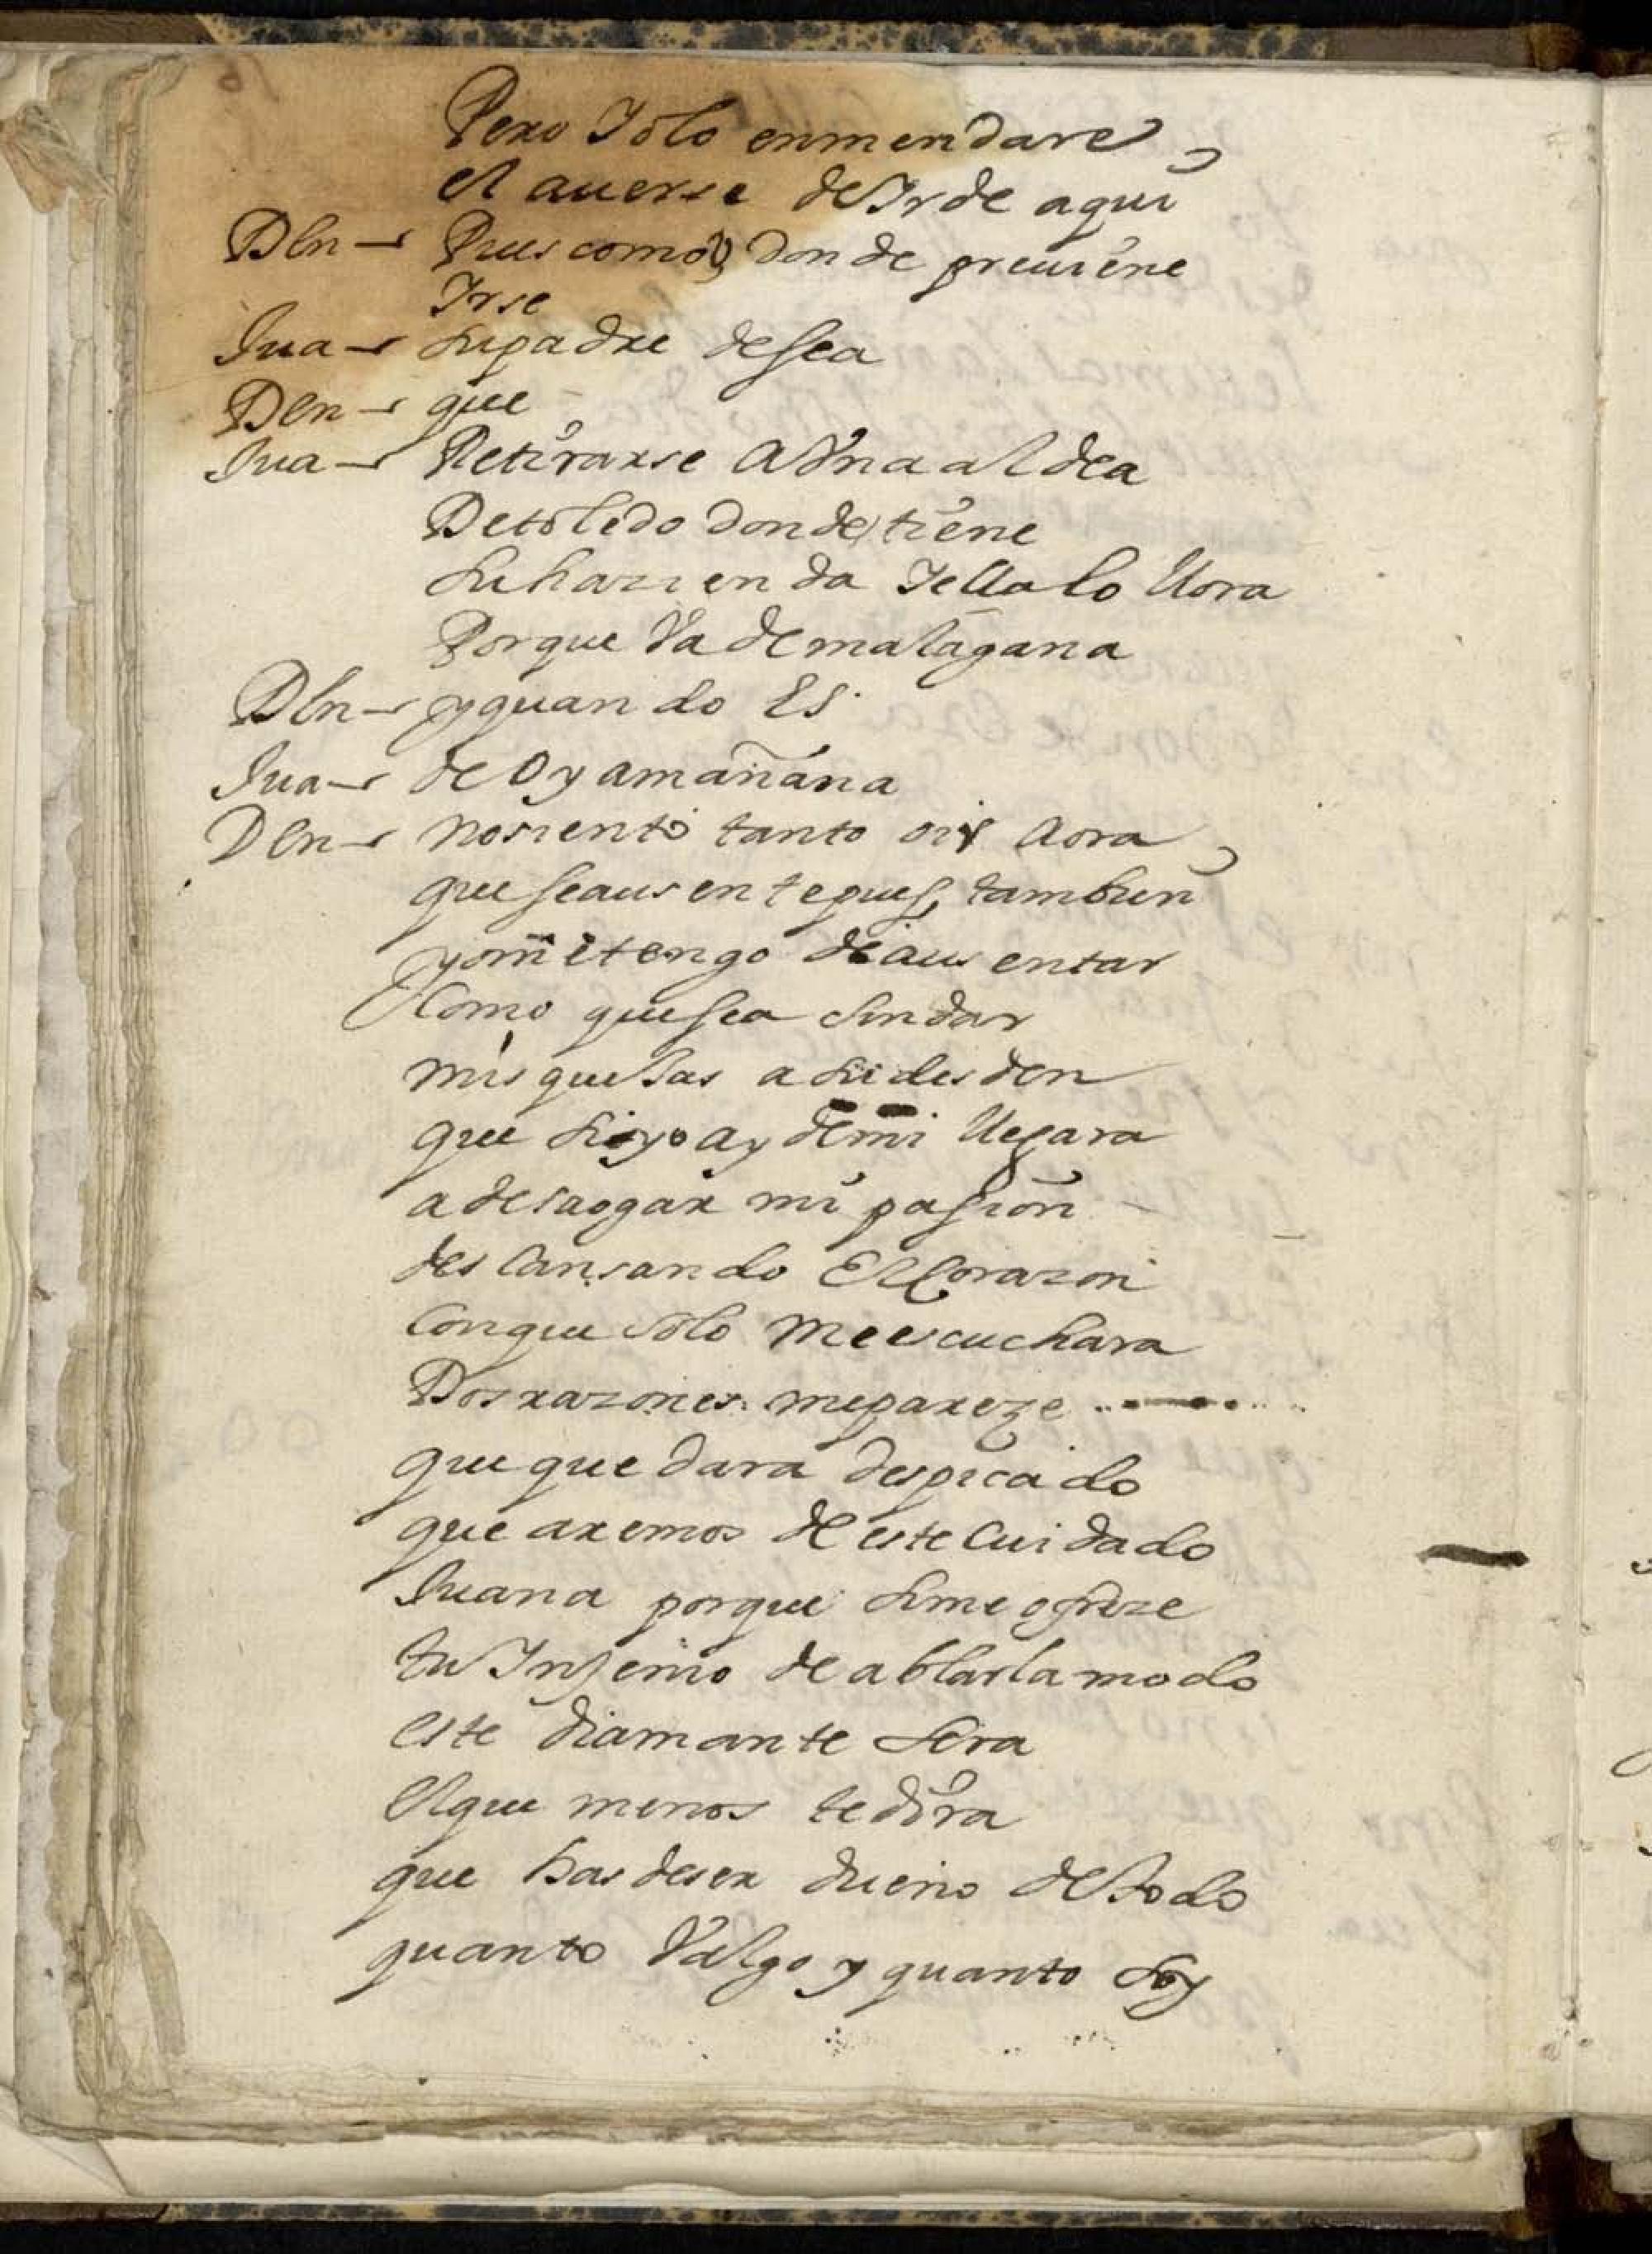 Pero Solo enmendare
el auerse de Irde aqui
Dln — Pues como, donde preuiene
Irse
Jua — Supadre desea
Dln — que
Jua — Retirarse a Vna aldea
De toledo donde tiene
Suhazienda Iella lo llora
Porque Va demalagana
Dln — yquando Es
Jua — de Oy amañana
Dln — nosiento tanto oir aora
que seausente pues, tambien
yo me tengo de ausentar
Como quesea Sindar
mis quejas a su desden
que Si yo ay de mi llegara
a desaogar mi pasion
descansando El Corazon
Conque solo me escuchara
Dos razones mepareze
que quedara despicado
que aremos de este Cuidado
Juana porque Sime ofreze
tu Injenio de ablarla modo
este diamante Sera
el que menos te dira
que has deser dueño de todo
quanto Valgo y quanto Soy